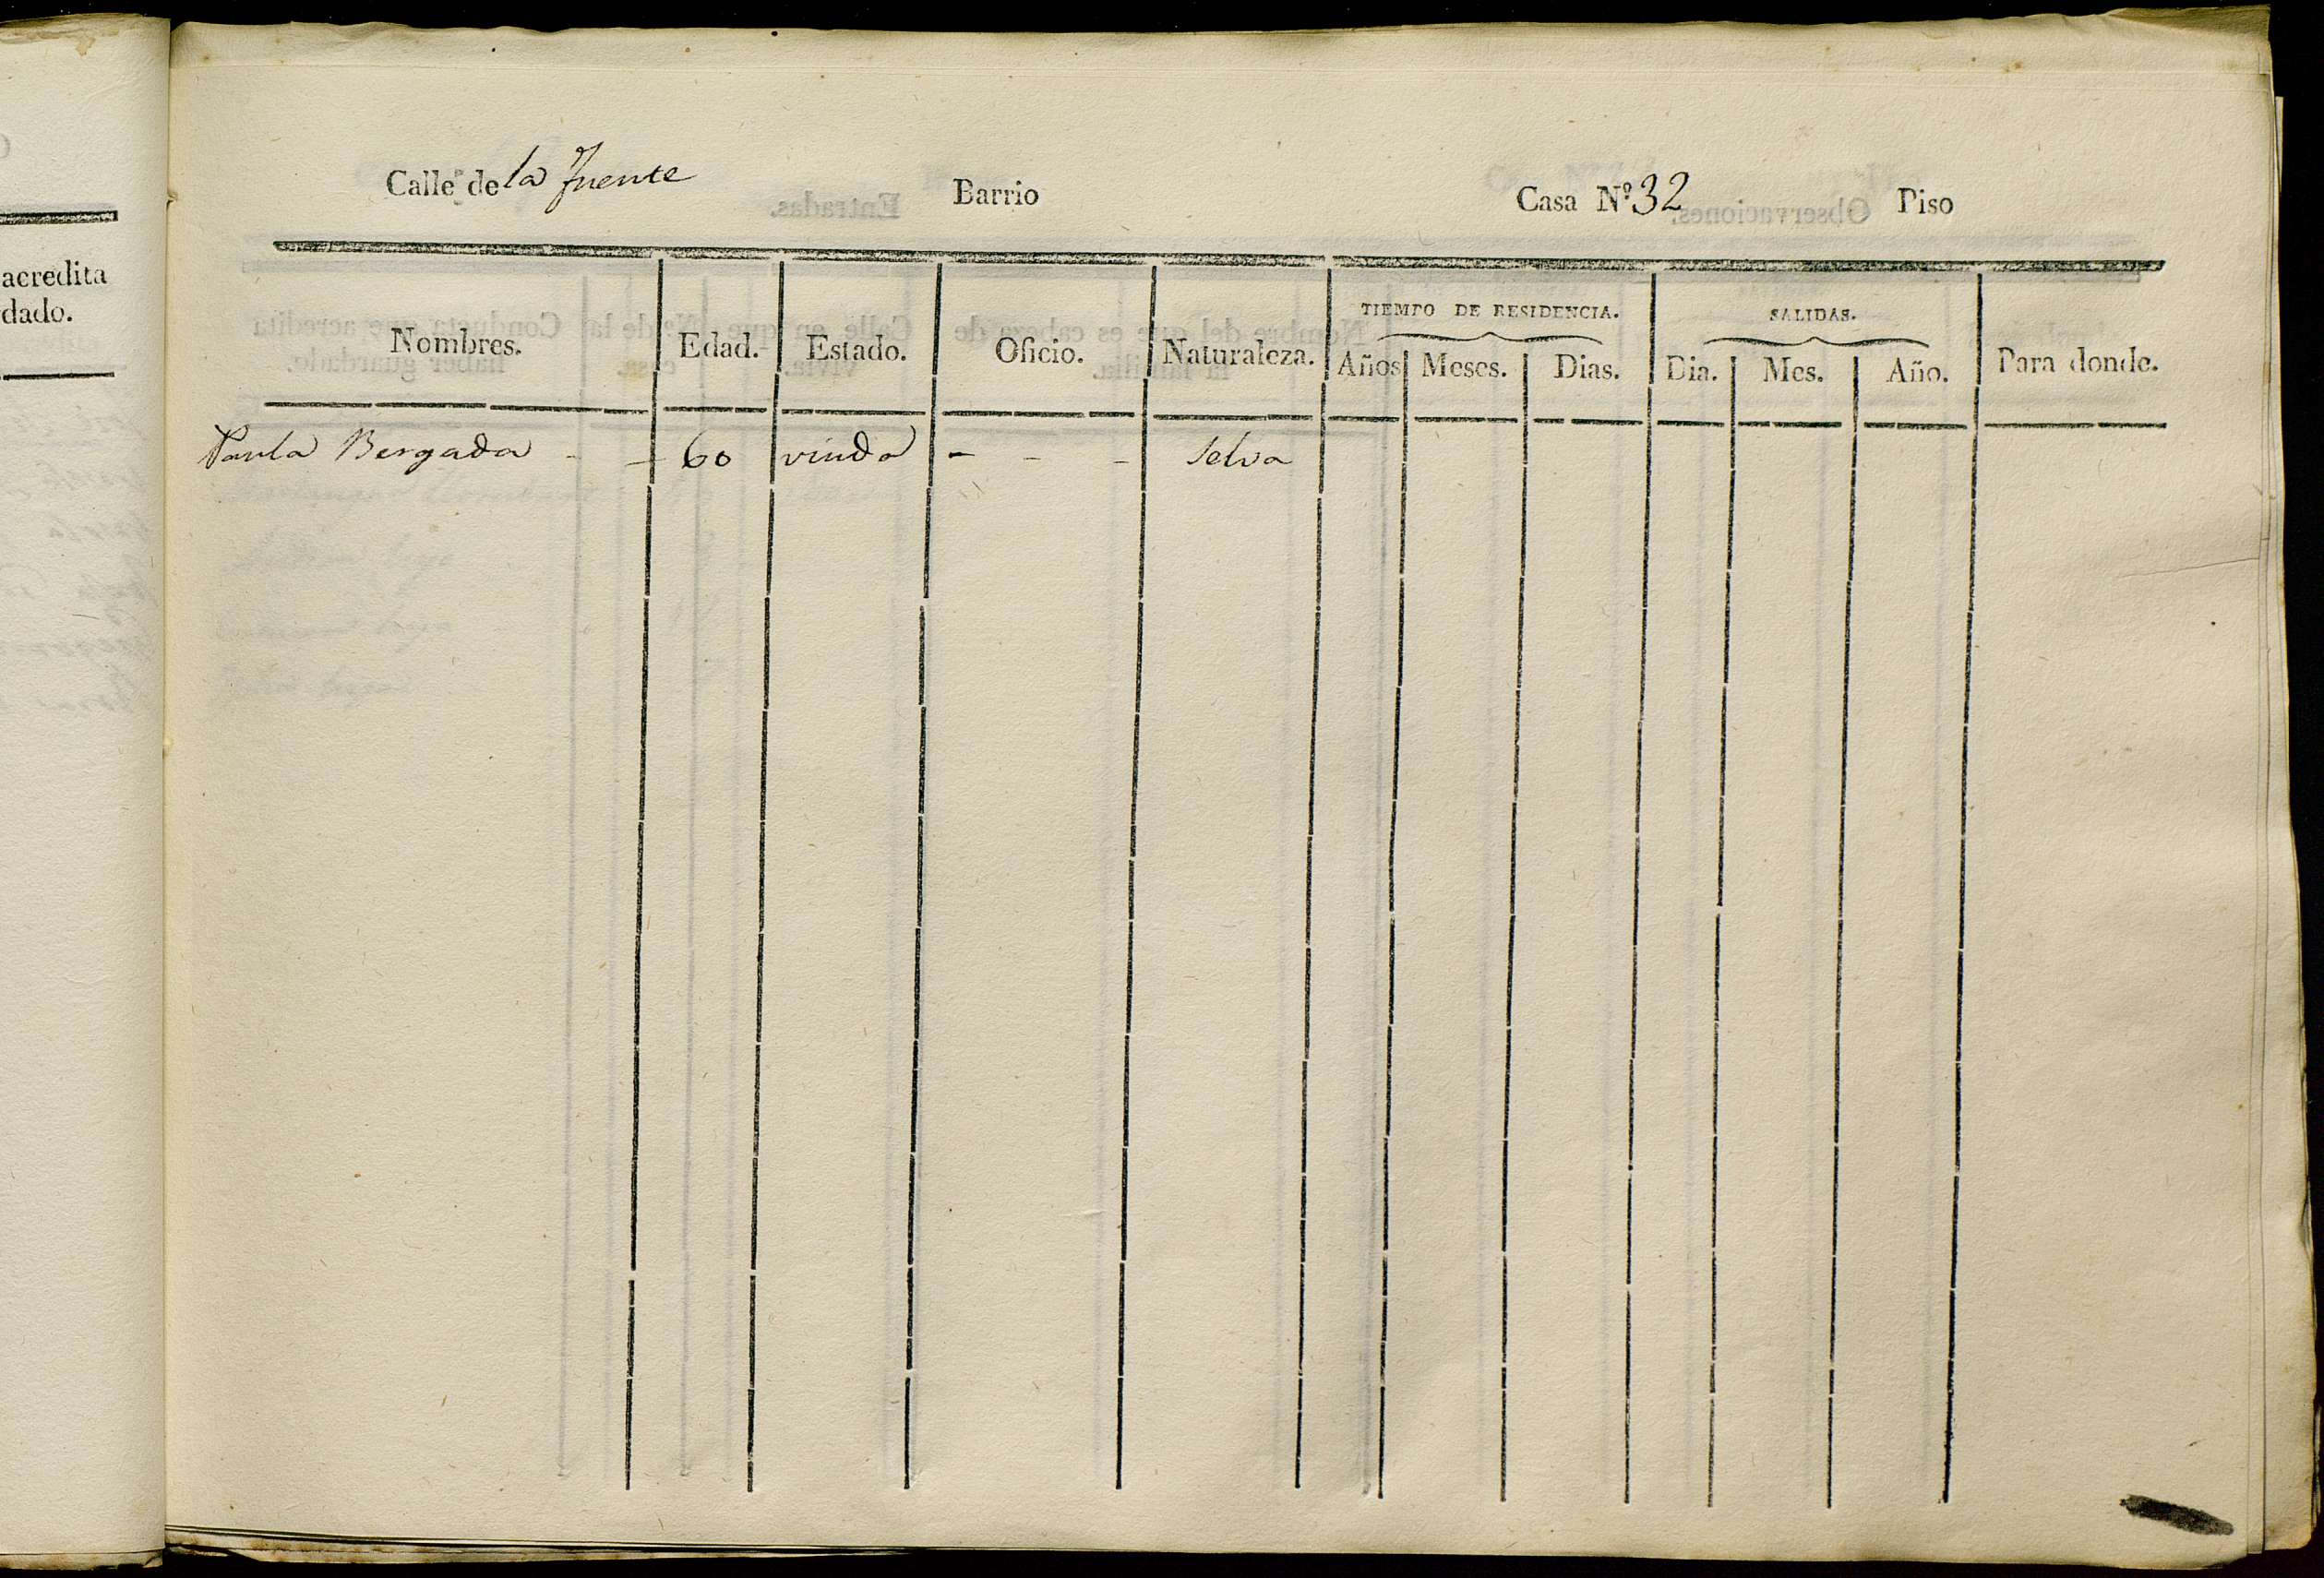 acredita
dado.
Calle de la fuente Barrio Casa Nº 32 Piso
TIEMPO DE RESIDENCIA. SALIDAS.
Nombres. Edad. Estado. Oficio. Naturaleza. Años Meses. Dias. Dia. Mes. Año. Para donde.
Paula Bergada - - 60 viuda - - - Selva